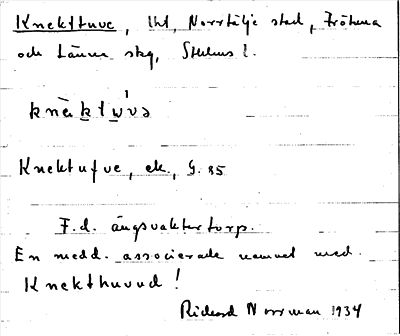 Knekttuve, lht, Norrtälje stad, Frötuna
och Länna skg, Sthlms l.
knèktẁvə
Knektufve, ek., G. 85
F.d. ängsvaktertorp.
En medd. associerade namnet med
Knekthuvud!
Rickard Norrman 1934